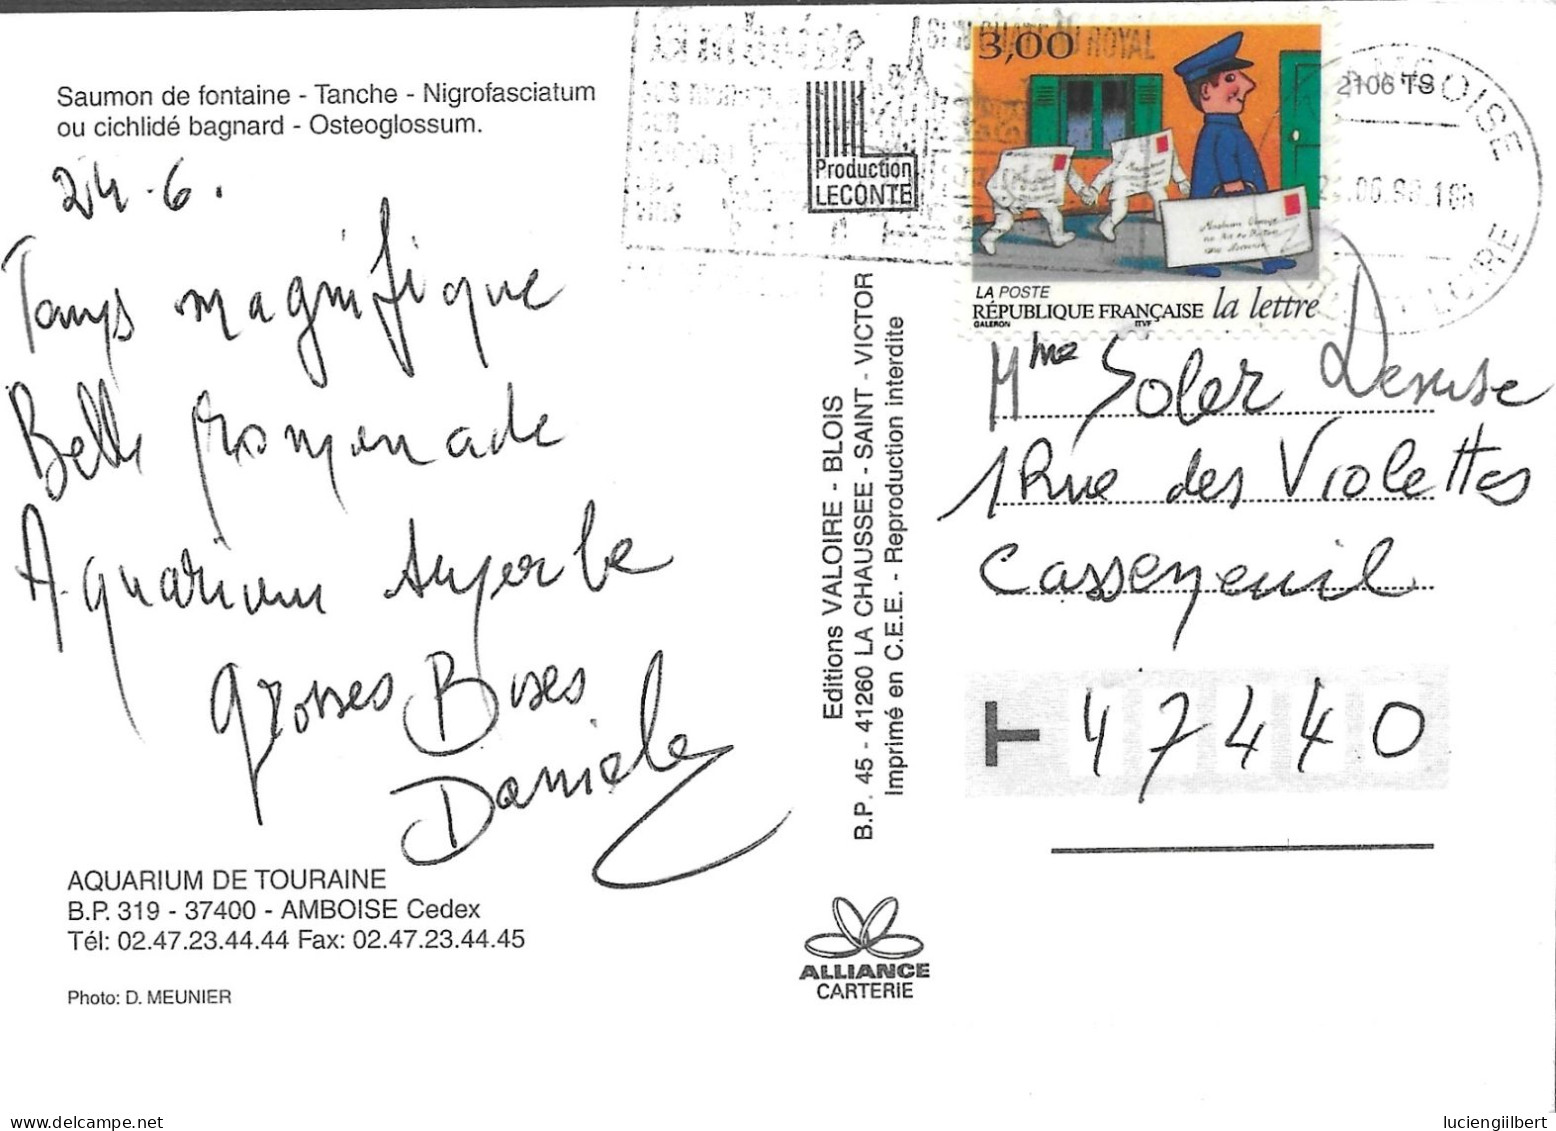 Saumon de fontaine - Tanche - Nigrofasciatum
ou cichlidé bagnard - Osteoglossum.
24-6.
Temps magnifique
Belle promenade
Aquarium superbe
grosses Bises
Daniele
AQUARIUM DE TOURAINE
B.P. 319 - 37400 - AMBOISE Cedex
Tél: 02.47.23.44.44 Fax: 02.47.23.44.45
Photo: D. MEUNIER
Production
LECONTE
Editions VALOIRE - BLOIS
B.P. 45 - 41260 LA CHAUSSEE - SAINT - VICTOR
Imprimé en C.E.E. - Reproduction interdite
ALLIANCE
CARTERIE
ROYAL
3,00
LA POSTE
RÉPUBLIQUE FRANÇAISE la lettre
GALERON ITVF
2106 TS
AMBOISE
18h
LOIRE
Mme Soler Denise
1 Rue des Violettes
Casseneuil
T 47440
luciengilbert